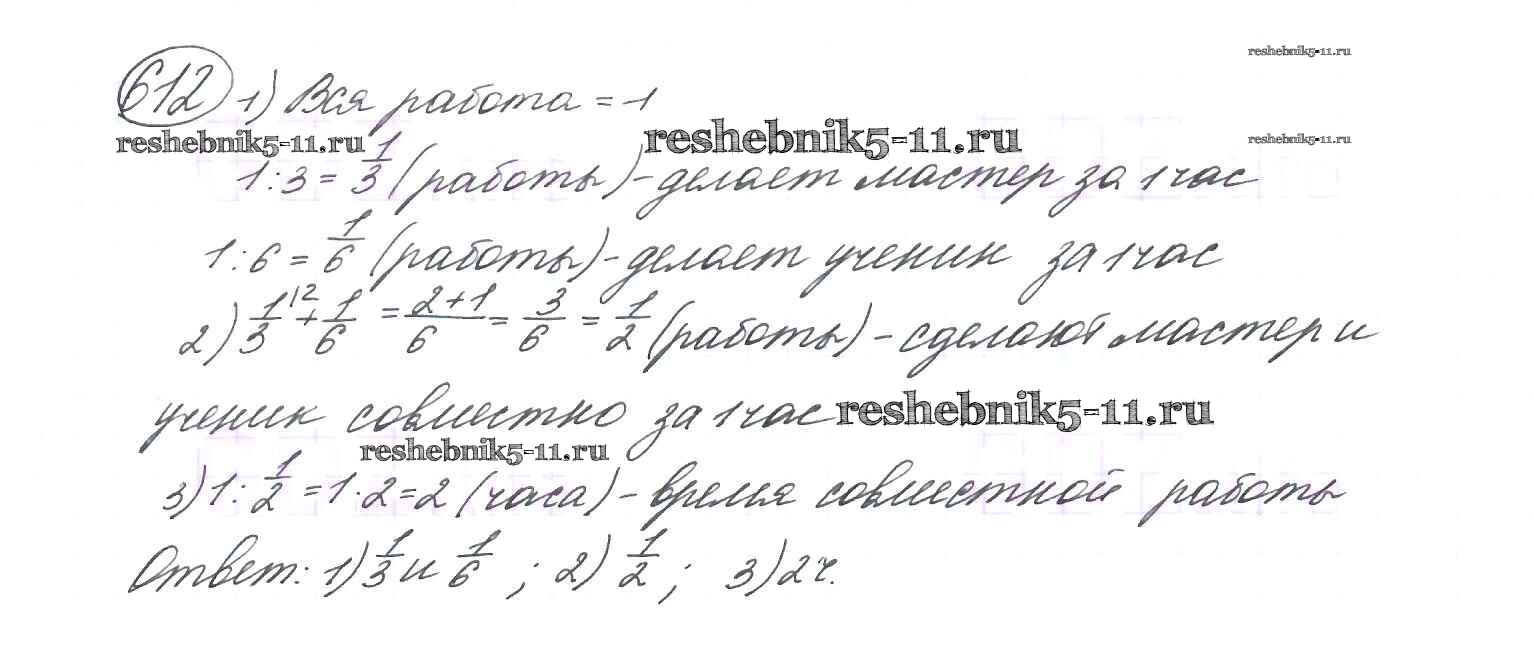 reshebnik5-11.ru
612 1) Вся работа = 1
reshebnik5-11.ru reshebnik5-11.ru reshebnik5-11.ru
1:3 = 1/3 (работы) - делает мастер за 1 час
1:6 = 1/6 (работы) - делает ученик за 1 час
2) 1/3 \2 + 1/6 = 2+1/6 = 3/6 = 1/2 (работы) - сделают мастер и
ученик совместно за 1 час reshebnik5-11.ru
reshebnik5-11.ru
3) 1: 1/2 = 1·2 = 2 (часа) - время совместной работы
Ответ: 1) 1/3 и 1/6 ; 2) 1/2 ; 3) 2 ч.